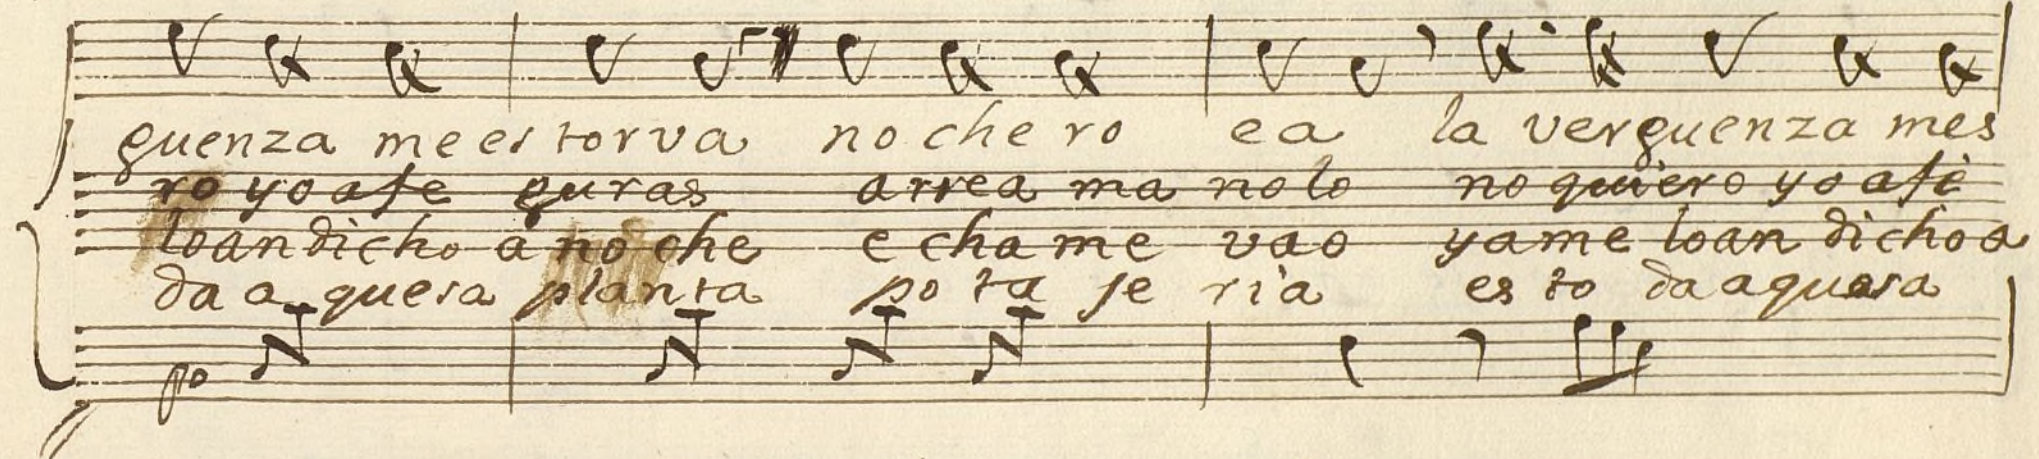 guenza me es torva no che ro e a la verguenza mes
ro yo a fe guras arrea ma no lo no quiero yo a fe
loan dicho a no che e cha me vao ya me loan dicho a
da a quesa planta po ta se ria es to da aquesa
po